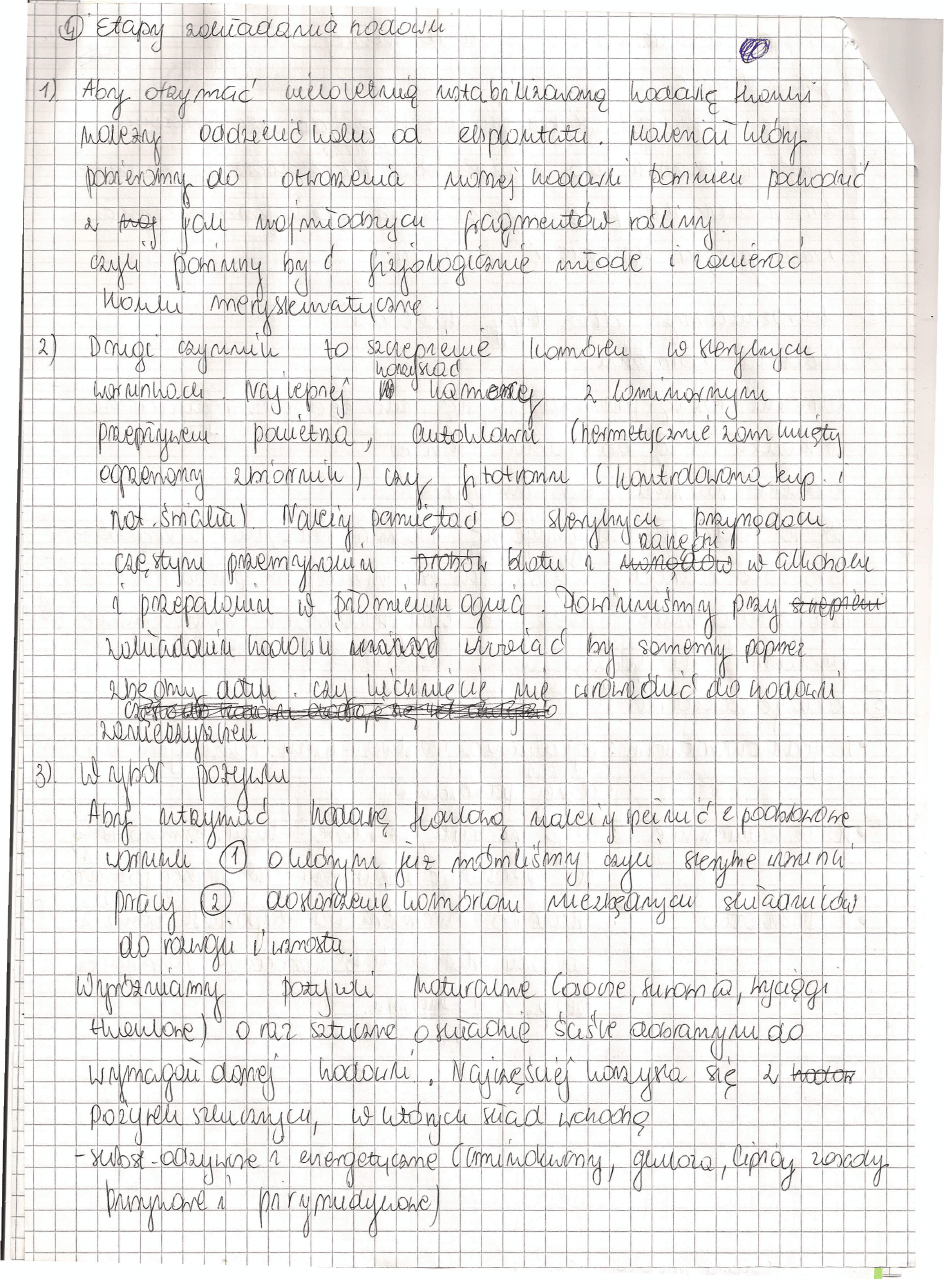 ④ Etapy zakładania hodowli
1) Aby otrzymać wieloletnią ustabilizowaną hodowlę tkanki
należy oddzielić kalus od eksplantatu. Materiał który
pobieramy do otworzenia nowej hodowli powinien pochodzić
z jak najmłodszych fragmentów rośliny.
czyli powinny być fizjologicznie młode i zawierać
tkanki merystematyczne.
2) Drugi czynnik to szczepienie komórek w sterylnych
warunkach. Najlepiej korzystać kamery z laminarnym
przepływem powietrza, autoklawu (hermetycznie zamknięty
ogrzewany zbiornik) czy fitotronu (kontrolowana temp. i
nat. światła). Należy pamiętać o sterylnych przyrządach
częstym przemywaniu blatu i narzędzi w alkoholu
i przepalaniu w płomieniu ognia. Powinniśmy przy
zakładaniu hodowli uważać by samemu poprzez
zbędny dotyk czy kichnięcie nie wprowadzić do hodowli
zanieczyszczeń.
3) Wybór pożywki
Aby utrzymać hodowlę tkankową należy spełnić 2 podstawowe
warunki ① o którym już mówiliśmy czyli sterylne warunki
pracy ② dostarczenie komórkom niezbędnych składników
do rozwoju i wzrostu.
Wyróżniamy pożywki naturalne (osocze, surowica, wyciągi
tkankowe) oraz sztuczne o składzie ściśle dobranym do
wymagań danej hodowli. Najczęściej korzysta się z
pożywek sztucznych, w których skład wchodzą
-subst. odżywcze i energetyczne (aminokwasy, glukoza, lipidy zasady
purynowe i pirymidynowe)